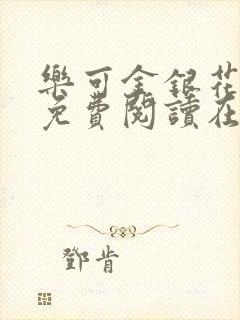 樂可金銀花
免費閱讀在
鄧肯